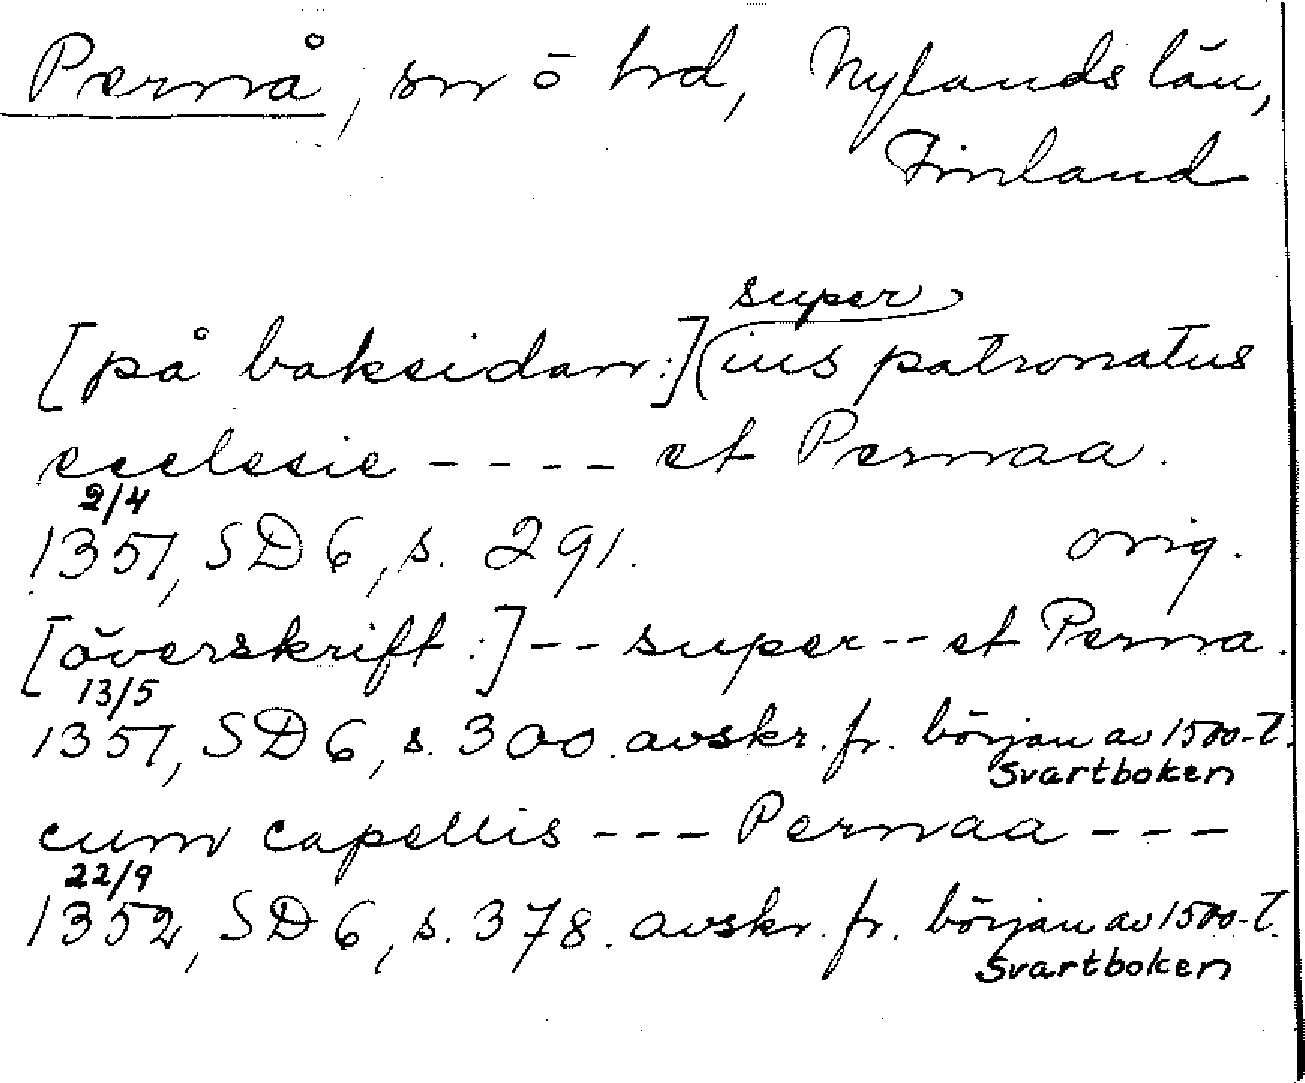 Pernå, sn o hd, Nylands län,
Finland
super
[på baksidan:] ius patronatus
ecclesie - - - - et Pernaa.
2/4
1351, SD 6, s. 291. orig.
[överskrift:] - - super - - et Perna.
13/5
1351, SD 6, s. 300. avskr. fr. början av 1500-t.
Svartboken
cum capellis - - - Pernaa - - -
22/9
1352, SD 6, s. 378. avskr. fr. början av 1500-t.
Svartboken